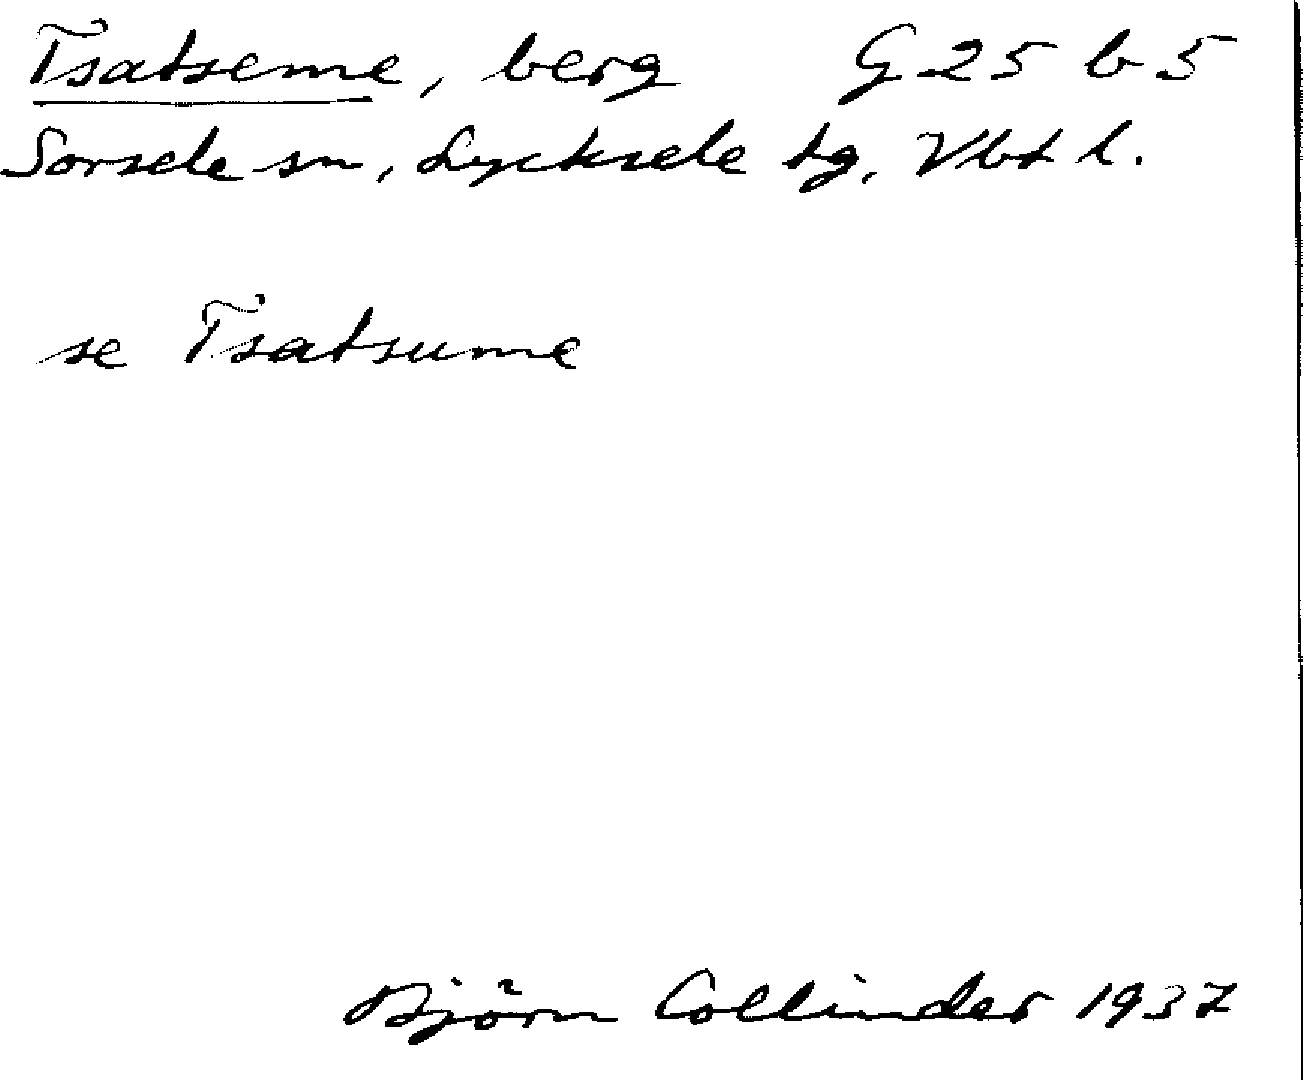 Tsatseme, berg G 25 b 5
Sorsele sn, Lycksele tg, Vbt l.
se Tsatsume
Björn Collinder 1937